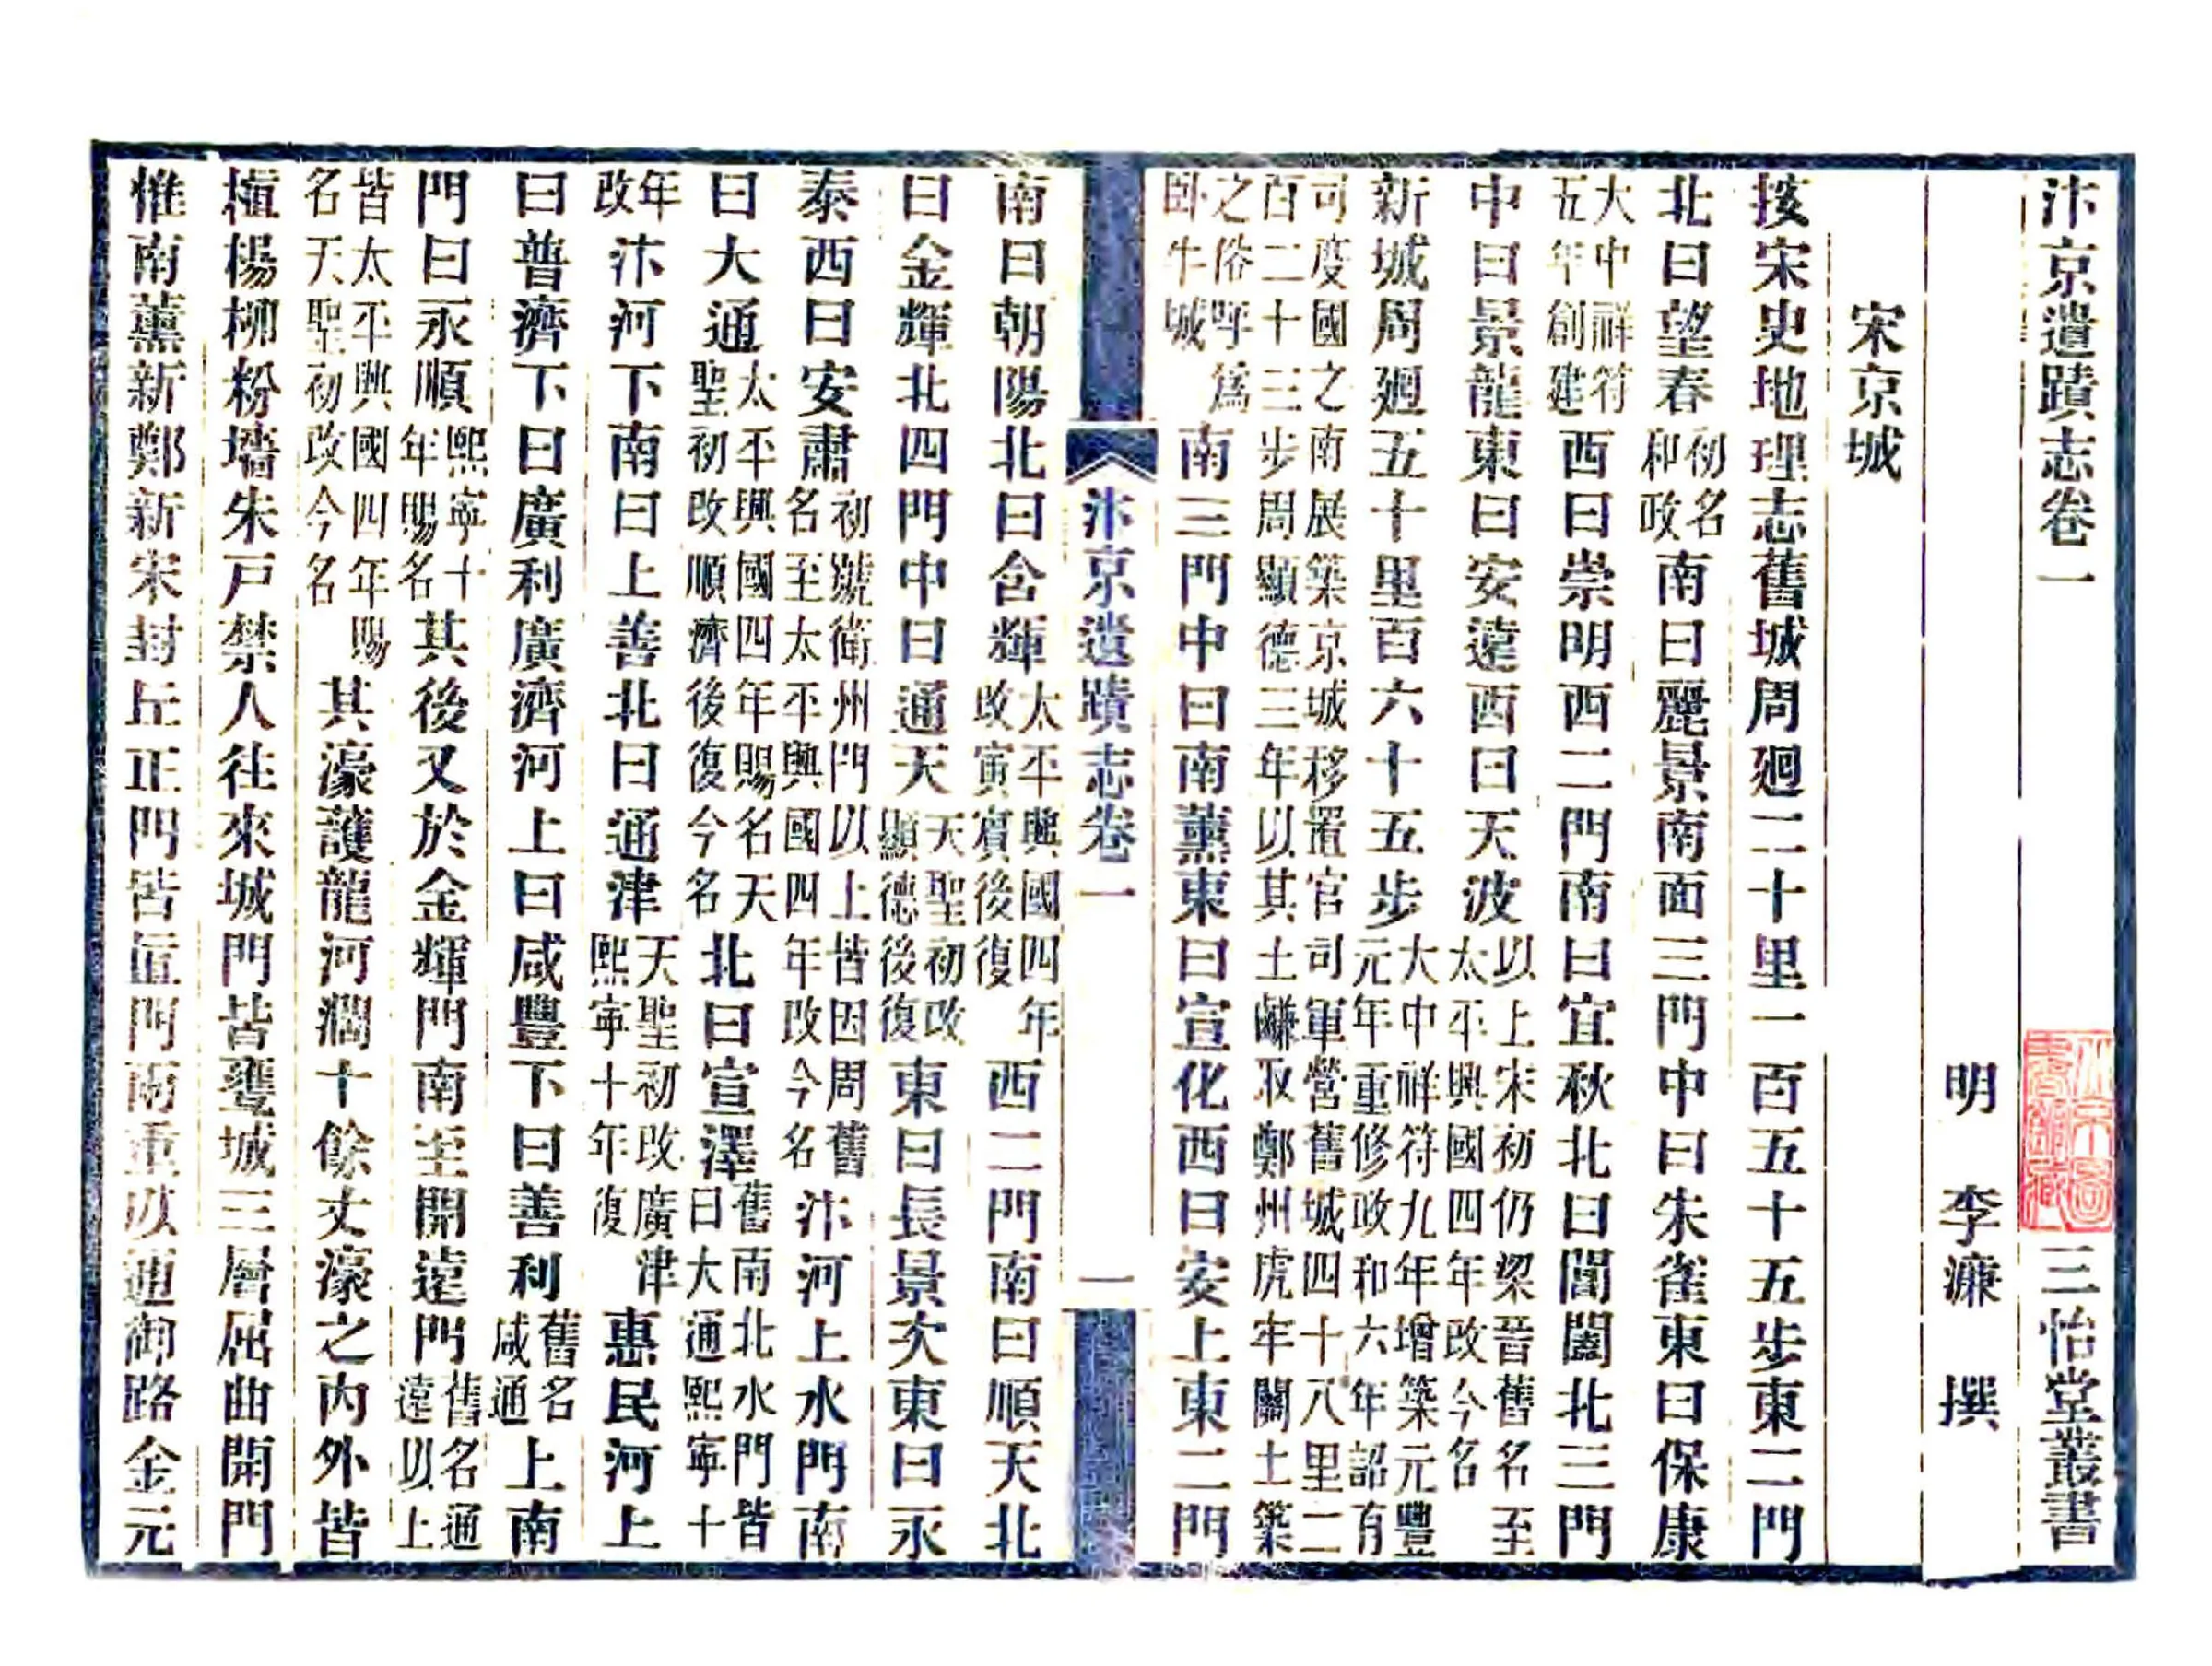 汴京遺蹟志卷一　三怡堂叢書
明　李濂　撰
宋京城
按宋史地理志舊城周廻二十里一百五十五步東二門
北曰望春初名和政南曰麗景南面三門中曰朱雀東曰保康
大中祥符五年創建西曰崇明西二門南曰宜秋北曰閶闔北三門
中曰景龍東曰安遠西曰天波以上宋初仍梁晉舊名至太平興國四年改今名
新城周廻五十里百六十五步大中祥符九年增築元豐元年重修政和六年詔有
司度國之南展築京城移置官司軍營舊城四十八里二百二十三步周顯德三年以其土鹻取鄭州虎牢關土築
之俗呼爲臥牛城南三門中曰南薰東曰宣化西曰安上東二門
汴京遺蹟志卷一　一
南曰朝陽北曰含輝太平興國四年改寅賓後復西二門南曰順天北
曰金輝北四門中曰通天天聖初改顯德後復東曰長景次東曰永
泰西曰安肅初號衛州門以上皆因周舊名至太平興國四年改今名汴河上水門南
曰大通太平興國四年賜名天聖初改順濟後復今名北曰宣澤舊南北水門皆曰大通熙寧十
年改汴河下南曰上善北曰通津天聖初改廣津熙寧十年復惠民河上
曰普濟下曰廣利廣濟河上曰咸豐下曰善利舊名咸通上南
門曰永順熙寧十年賜名其後又於金輝門南至開遠門舊名通遠以上
皆太平興國四年賜名天聖初改今名其濠護龍河濶十餘丈濠之內外皆
植楊柳粉墻朱戸禁人往來城門皆甕城三層屈曲開門
惟南薰新鄭新宋封丘正門皆直門兩重以通御路金元